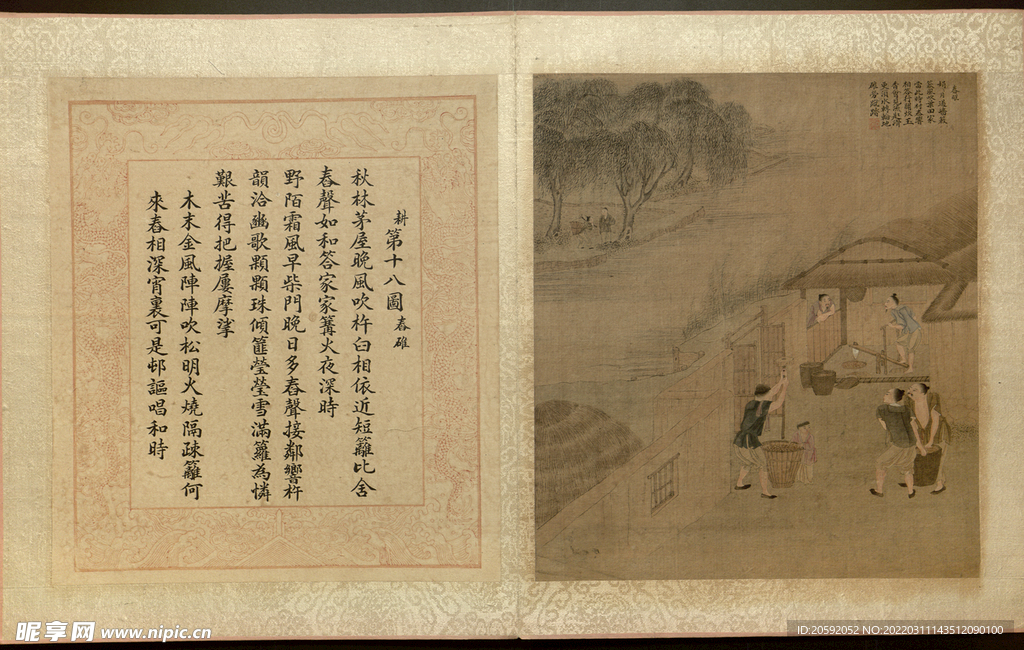 耕第十八圖舂碓
秋林茅屋晚風吹杵臼相依近短籬比舍
舂聲如和答家家篝火夜深時
野陌霜風早柴門晚日多舂聲接鄰響杵
韻洽幽歌顆顆珠傾筐瑩瑩雪滿籮為憐
艱苦得把握屢摩挲
木末金風陣陣吹松明火燒隔疎籬何
來舂相深宵裏可是邨謳唱和時
舂碓
昵享网 www.nipic.cn
ID:20592052 NO:20220311143512090100